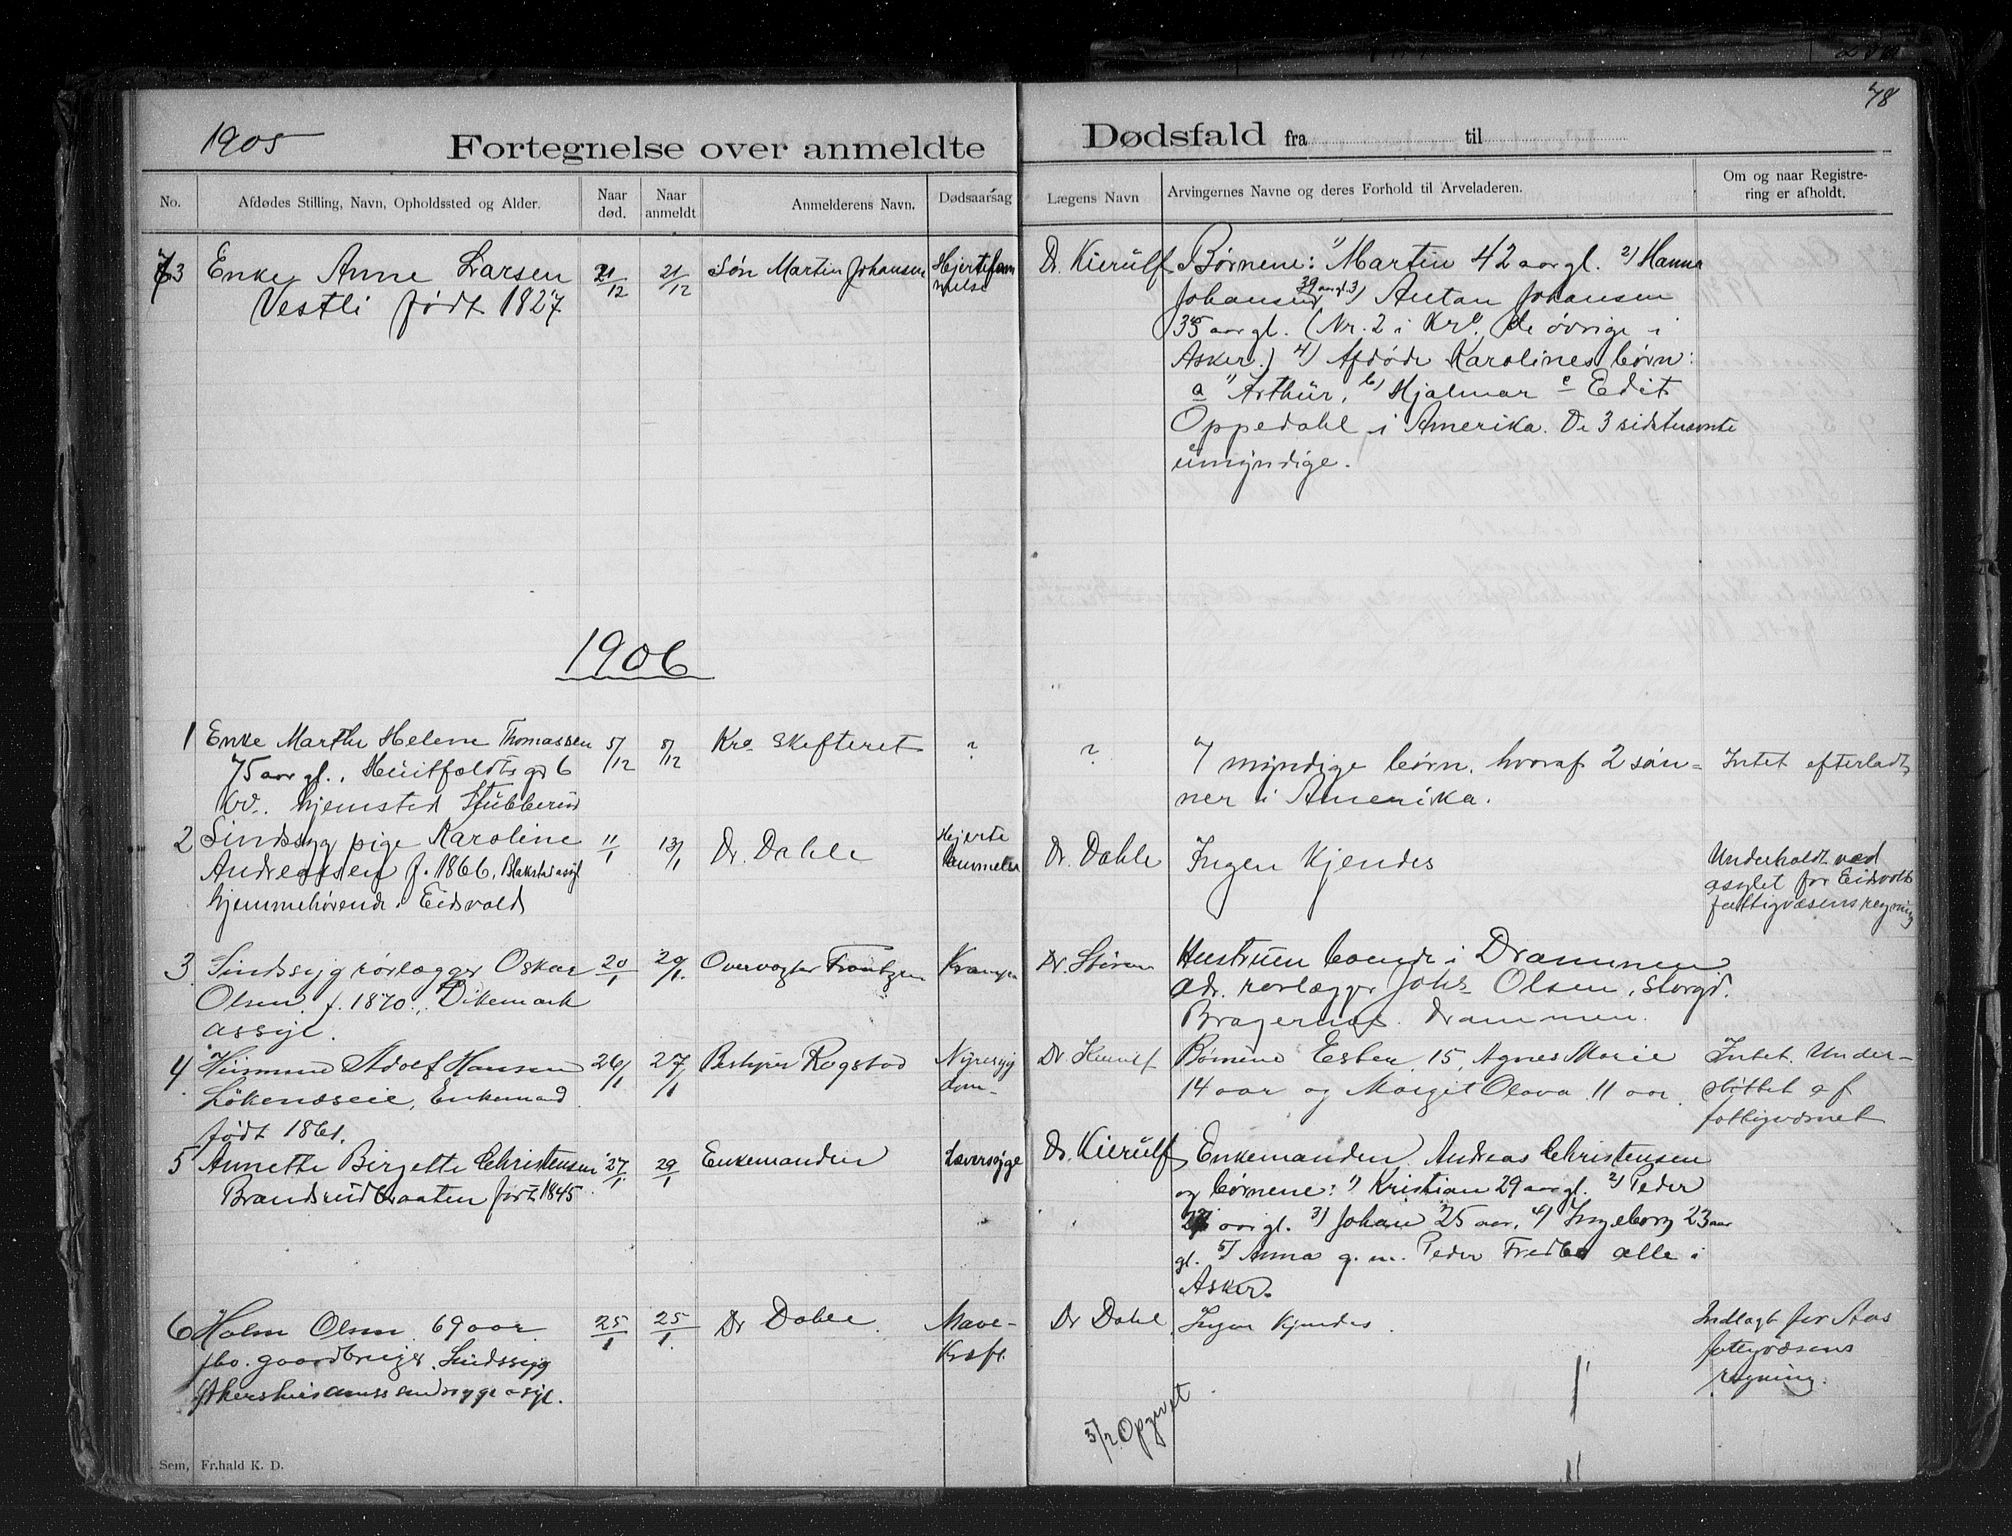 78
1905
Fortegnelse over anmeldte Dødsfald fra til
No.
Afdødes Stilling, Navn, Opholdssted og Alder.
Naar død.
Naar anmeldt
Anmelderens Navn.
Dødsaarsag
Lægens Navn
Arvingernes Navne og deres Forhold til Arveladeren.
Om og naar Registre-
ring er afholdt.
73 Enke Anne Larsen
Vestli født 1827
21/12
21/12
Søn Martin Johansen
Hjertelam
melse
Dr. Kierulf
Børnene: 1) Martin 42 aar gl. 2) Hanna
Johansen 39 aar gl. 3) Antan Johansen
35 aar gl. (Nr. 2 i Kra. de øvrige i
Asker.) 4) Afdøde Karolines børn:
a) Arthur, b) Hjalmar c Edit
Oppedahl i Amerika. De 3 sidstnævnte
umyndige.
1906
1 Enke Marthe Helene Thomassen
75 aar gl., Huitfeldts gd 6
hjemsted Stubberud
5/12
8/12
Kra Skifteret
?
?
7 myndige børn, hvoraf 2 søn-
ner i Amerika.
Intet efterladt
2 Sindssyg pige Karoline
Andreassen f. 1866, Blakstad asyl
hjemmehørende i Eidsvold
11/1
13/1
Dr. Dahle
Hjerte
lammelse
Dr. Dahle
Ingen Kjendes
Underholdt ved
asylet for Eidsvolds
fattigvæsens regning
3 Sindssyg rørlægger Oskar
Olsen f. 1870, Dikemark
assyl.
20/1
20/1.
Overvogter Frantzen
Krampe
Dr. Støren
Hustruen boende i Drammen
adr. rørlægger Johs Olsen, Storgd.
Bragernæs Drammen.
4 Husmand Adolf Hansen
Løkenæseie, Enkemand
født 1861.
26/1
27/1
Bestyrer Rogstad
Nyresyg
dom
Dr. Kierulf
Børnene Ester 15, Agnes Marie
14 aar og Margit Olava 11 aar.
Intet. Under-
støttet af
fattigvæsnet
5 Annette Birgette Christensen
Brandsrudbraaten født 1845
27/1
29/1
Enkemanden
Leversyge
Dr. Kierulf
Enkemanden Andreas Christensen
og børnene: 1) Kristian 29 aar gl. 2) Peder
27 aar gl. 3) Johan 25 aar, 4) Ingeborg 23 aar
gl. 5) Anna g. m. Peder Fredbo alle i
Asker.
6 Holm Olsen 69 aar
fhv. gaardbruger. Sindssyg
Akershus amts sindssyge asyl.
25/1
25/1.
Dr Dahle.
Mave-
Kræft.
Dr Dahl
Ingen Kjendes.
Indlagt for Aas
fattigvæsens
regning.
5/2 Opgivet
Sem, Fr.hald K. D.